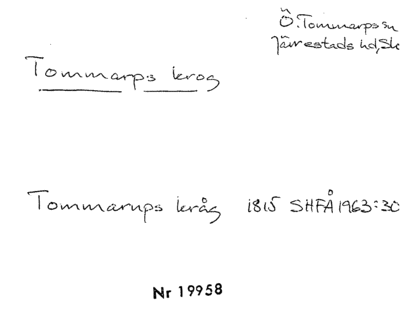 Ö. Tommarps sn
Järrestads hd, Sk
Tommarps krog
Tommarups kråg 1815 SHFÅ 1963:30
Nr 19958